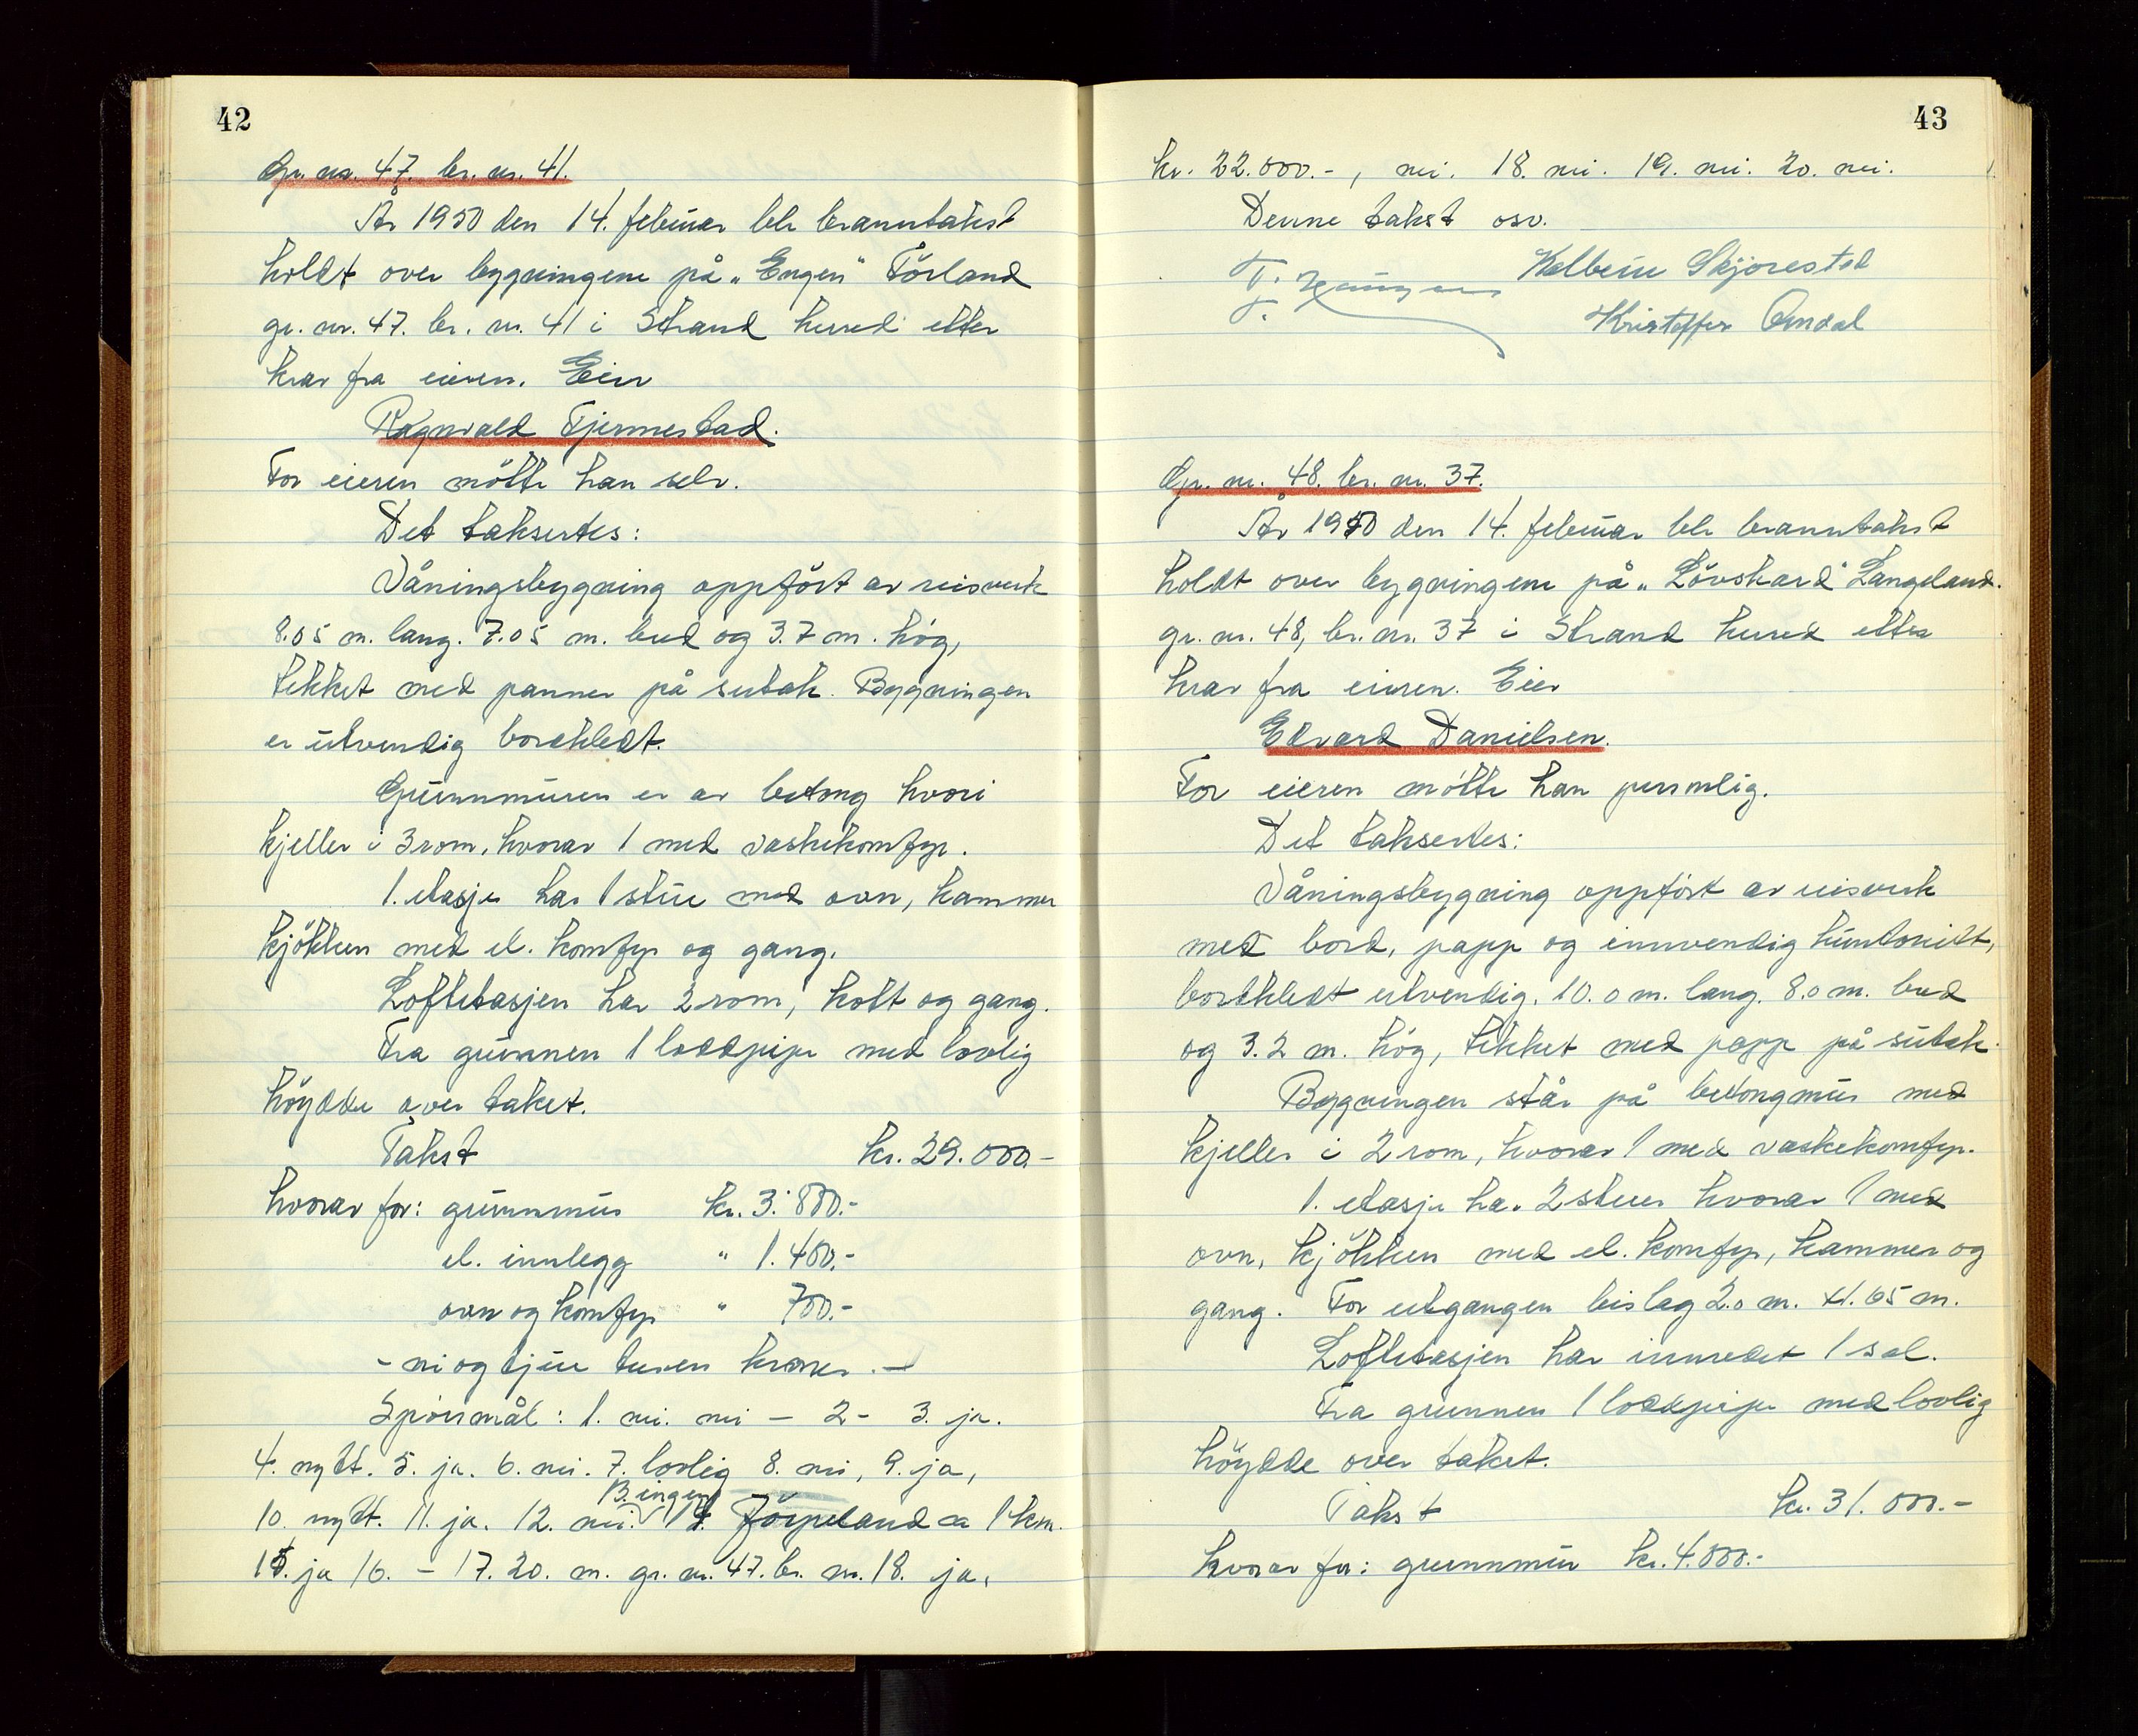 42
Gr. nr. 47. br. nr. 41.
År 1950 den 14. februar ble branntakst
holdt over bygningene på "Engen" Förland
gr. nr. 47. br. nr. 41 i Strand herred etter
krav fra eieren. Eier
Ragnvald Tjermestad.
For eieren mötte han selv.
Det taksertes:
Våningsbygning oppfört av reisverk
8.05 m. lang. 7.05 m. bred og 3.7 m. hög,
tekket med panner på sutak. Bygningen
er utvendig bordkledt.
Grunnmuren er av betong hvori
kjeller i 3 rom, hvorav 1 med vaskekomfyr.
1. etasje har 1 stue med ovn, kammer
kjökken med el. komfyr og gang.
Loftetasjen har 2 rom, kott og gang.
Fra grunnen 1 loddpipe med lovlig
höydde over taket.
Takst kr. 29.000.-
hvorav for: grunnmur kr. 3.800.-
el. innlegg " 1.400.-
ovn og komfyr " 700.-
- ni og tjue tusen kroner. -
Spörsmål: 1. nei. nei - 2 - 3. ja.
4. nytt. 5. ja. 6. nei. 7. lovlig 8. nei, 9. ja,
10. nytt. 11. ja. 12. nei. 13. ingen 14. Jörpeland ca 1 km.
15. ja 16. - 17. 20. m. gr. nr. 47. br. nr. 18. ja,
43
kr. 22.000.-, nei. 18. nei. 19. nei. 20. nei.
Denne takst osv.
Kolbein Skjorestad
Kristoffer Omdal
Gr. nr. 48. br. nr. 37.
År 1950 den 14. februar ble branntakst
holdt over bygningene på "Lövskard" Langeland.
gr. nr. 48, br. nr. 37 i Strand herred etter
krav fra eieren. Eier
Edvard Danielsen.
For eieren mötte han personlig.
Det taksertes:
Våningsbygning oppfört av reisverk
med bord, papp og innvendig huntonitt,
bordkledt utvendig. 10.0 m. lang. 8.0 m. bred
og 3.2 m. hög, tekket med papp på sutak.
Bygningen står på betongmur med
kjeller i 2 rom, hvorav 1 med vaskekomfyr.
1. etasje har 2 stuer hvorav 1 med
ovn, kjökken med el. komfyr, kammer og
gang. For utgangen bislag 2.0 m. x 1.65 m.
Loftetasjen har innredet 1 sal.
Fra grunnen 1 loddpipe med lovlig
höydde over taket.
Takst kr. 31.000.-
hvorav for: grunnmur kr. 4.000.-